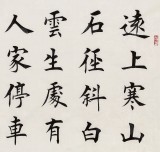 遠上寒山
石徑斜白
雲生處有
人家停車